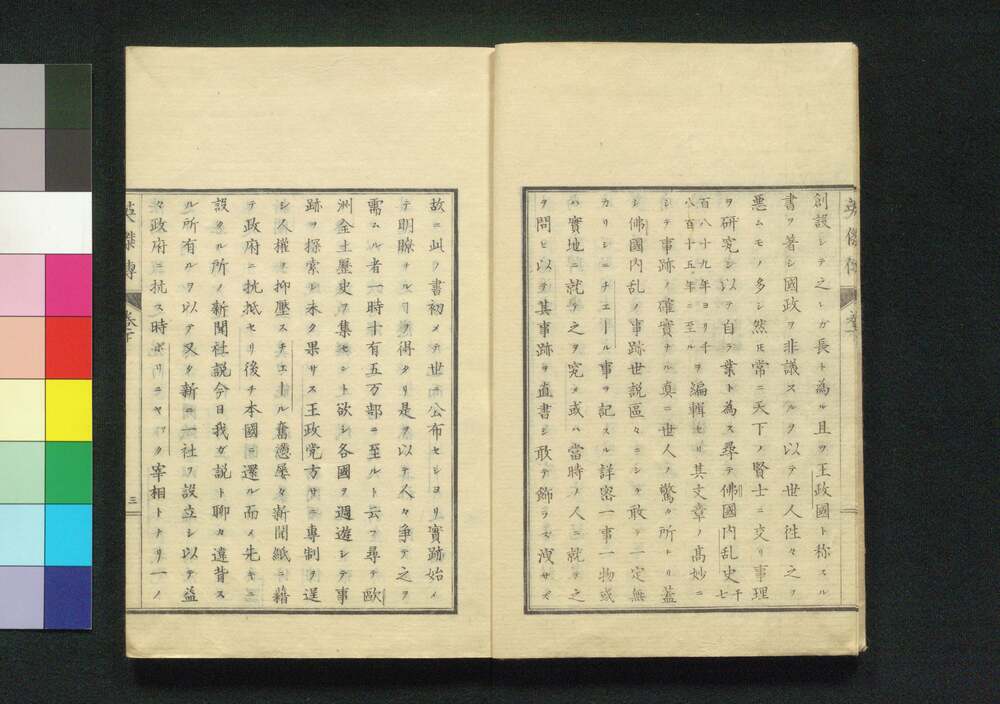 創設シテ之レガ長ト為ル且ツ王政國ト称スル
書ヲ著シ國政ヲ非議スルヲ以テ世人往々之ヲ
悪ムモノ多シ然𪜈常ニ天下ノ賢士ニ交リ事理
ヲ研究シ以テ自ラ業ト為ス尋テ佛國内乱史千七
百八十九年ヨリ千八百十五年ニ至ルヲ編輯セリ其文章ノ高妙ニ
シテ事跡ノ確實ナル真ニ世人ノ驚ク所トリ蓋
シ佛國内乱ノ事跡世説區々ニシテ敢テ一定無
カリシニチエール事ヲ記スル詳密一事一物或
ハ實地ニ就テ之ヲ究メ或ハ當時ノ人ニ就テ之
ヲ問ヒ以テ其事跡ヲ直書シ敢テ飾ラズ洩サズ
故ニ此ノ書初メテ世ニ公布セシヨリ實跡始メ
テ明瞭ナルヿヲ得タリ是ヲ以テ人々争テ之ヲ
需ムル者一時十有五万部ニ至ルト云フ尋テ歐
洲全土歴史ヲ集セント欲シ各國ヲ週遊シテ事
跡ヲ探索シ未タ果サス王政党方サニ専制ヲ逞
シ人權ヲ抑壓スチエール奮懣屡々新聞紙ニ藉
テ政府ニ抗抵セリ後チ本國ニ還ル而メ先キニ
設クル所ノ新聞社説今日我ガ説ト聊カ違背ス
ル所有ルヲ以テ又タ新ニ一社ヲ設立シ以テ益
々政府ニ抗ス時ポリニヤック宰相トナリ一ノ
英傑傳
三